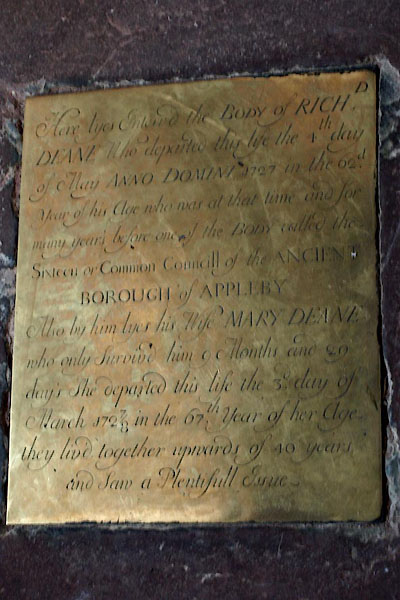 Here lyes Interr'd the BODY of RICH.D
DEANE Who departed this lyfe the 4th day
of May ANNO DOMINI 1727 in the 62d
Year of his Age who was at that time and for
many years before one of the BODY called the
Sixteen or Common Councill of the ANCIENT
BOROUGH of APPLEBY
Also by him lyes his Wife MARY DEANE
who only Survived him 9 Months and 29
days She departed this life the 3d day of
March 172 7/8 in the 67th Year of her Age
they liv'd together upwards of 40 years
and Saw a Plentifull Issue